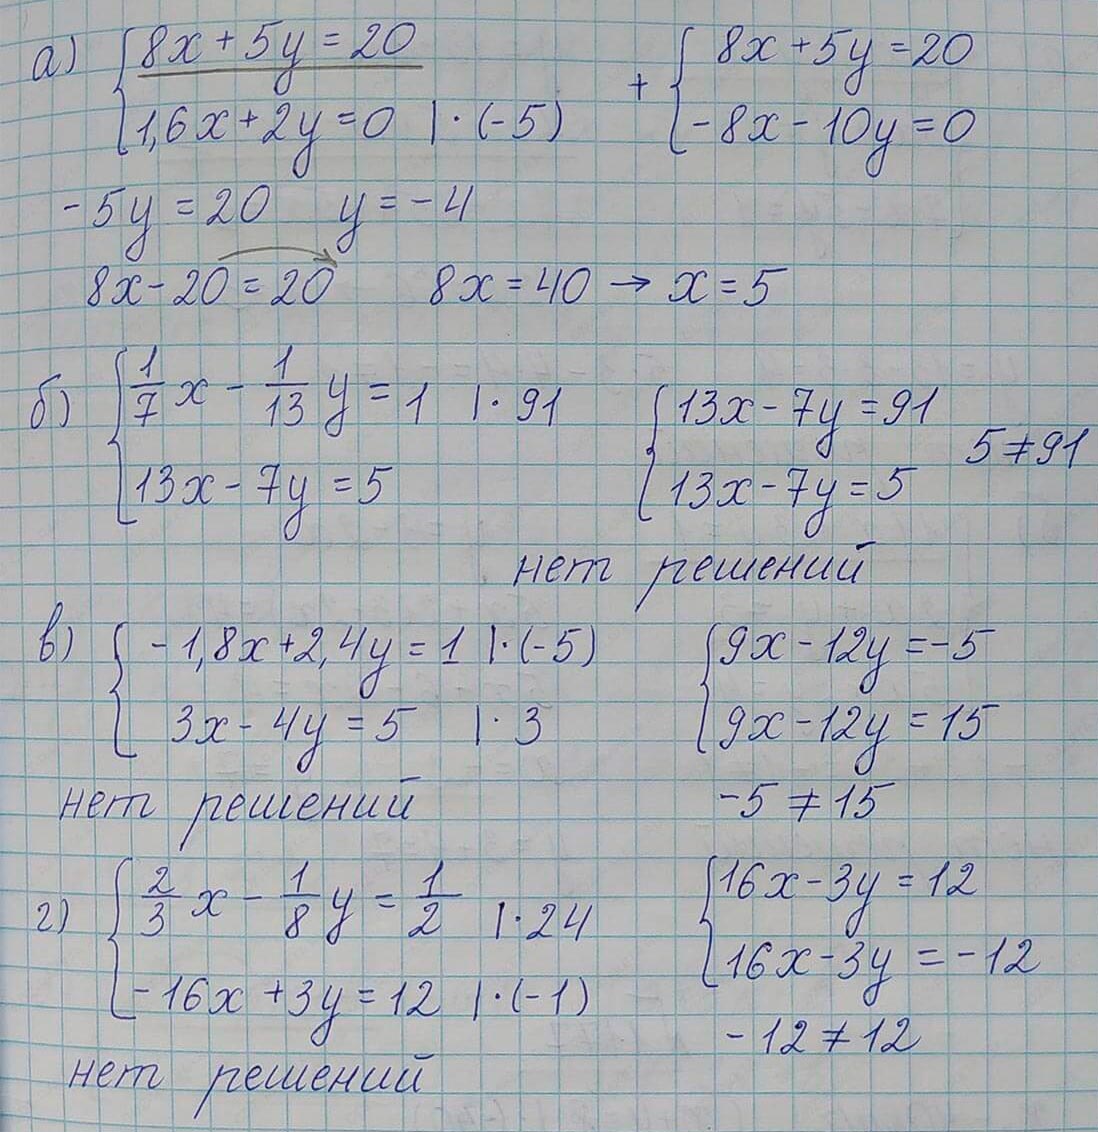 а) { 8x + 5y = 20        + { 8x + 5y = 20
1,6x + 2y = 0 | · (-5)        -8x - 10y = 0
-5y = 20    y = -4
8x - 20 = 20    8x = 40 → x = 5
б) { 1/7 x - 1/13 y = 1 | · 91        { 13x - 7y = 91
13x - 7y = 5        13x - 7y = 5    5 ≠ 91
нет решений
в) { -1,8x + 2,4y = 1 | · (-5)        { 9x - 12y = -5
3x - 4y = 5 | · 3        9x - 12y = 15
нет решений        -5 ≠ 15
г) { 2/3 x - 1/8 y = 1/2 | · 24        { 16x - 3y = 12
-16x + 3y = 12 | · (-1)        16x - 3y = -12
-12 ≠ 12
нет решений